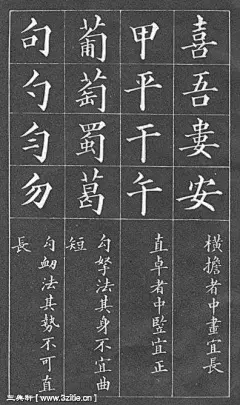 喜吾婁安
橫擔者中畫宜長
甲平干午
直卓者中竪宜正
葡萄蜀葛
勾拏法其身不宜曲
短
句勺勻勿
勾衂法其勢不可直
長
三典轩【www.3zitie.cn】